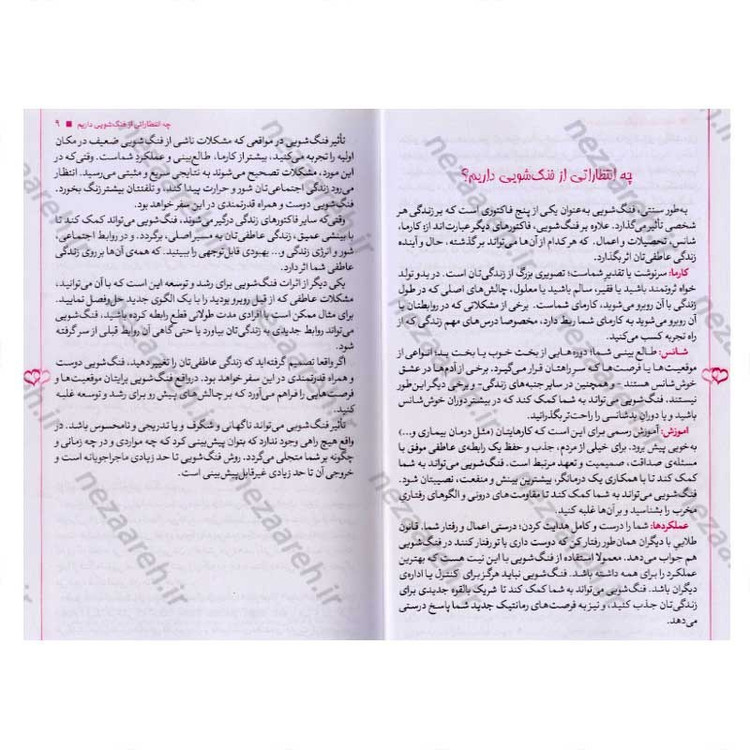 چه انتظاراتی از فنگ‌شویی داریم؟
به‌طور سنتی، فنگ‌شویی به‌عنوان یکی از پنج فاکتوری است که بر زندگی هر
شخصی تأثیر می‌گذارد. علاوه بر فنگ‌شویی، فاکتورهای دیگر عبارت‌اند از: کارما،
شانس، تحصیلات و اعمال. که هر کدام از آن‌ها می‌تواند بر گذشته، حال و آینده
زندگی عاطفی‌تان اثر بگذارد.
کارما: سرنوشت یا تقدیر شماست؛ تصویری بزرگ از زندگی‌تان است. در بدو تولد
خواه ثروتمند باشید یا فقیر، سالم باشید یا معلول، چالش‌های اصلی که در طول
زندگی با آن روبرو می‌شوید، کارمای شماست. برخی از مشکلاتی که در روابطتان با
آن روبرو می‌شوید به کارمای شما ربط دارد، مخصوصا درس‌های مهم زندگی که از
راه تجربه کسب می‌کنید.
شانس: طالع بینی شما؛ دوره‌هایی از بخت خوب یا بخت بد؛ انواعی از
موقعیت‌ها یا فرصت‌ها که سر راهتان قرار می‌گیرد. برخی از آدم‌ها در عشق
خوش‌شانس هستند - و همچنین در سایر جنبه‌های زندگی- و برخی دیگر این‌طور
نیستند. فنگ‌شویی می‌تواند به شما کمک کند که در بیشتر دوران خوش‌شانس
باشید و یا دوران بدشانسی را راحت‌تر بگذرانید.
آموزش: آموزش رسمی برای این است که کارهایتان (مثل درمان بیماری و...)
به‌خوبی پیش برود. برای خیلی از مردم، جذب و حفظ یک رابطه‌ی عاطفی موفق با
مسئله‌ی صداقت، صمیمیت و تعهد مرتبط است. فنگ‌شویی می‌تواند به شما
کمک کند تا با همکاری یک درمانگر، بیشترین بینش و منفعت، نصیبتان شود.
فنگ‌شویی می‌تواند به شما کمک کند تا مقاومت‌های درونی و الگوهای رفتاری
مخرب را بشناسید و بر آن‌ها غلبه کنید.
عملکردها: شما را درست و کامل هدایت کردن؛ درستی اعمال و رفتار شما. قانون
طلایی با دیگران همان‌طور رفتار کن که دوست داری با تو رفتار کنند در فنگ‌شویی
هم جواب می‌دهد. معمولا استفاده از فنگ‌شویی با این نیت است که بهترین
عملکرد را برای همه داشته باشد. فنگ‌شویی نباید هرگز برای کنترل یا اداره‌ی
دیگران باشد. فنگ‌شویی می‌تواند به شما کمک کند تا شریک بالقوه جدیدی برای
زندگی‌تان جذب کنید، و نیز به فرصت‌های رمانتیک جدید شما پاسخ درستی
می‌دهد.
چه انتظاراتی از فنگ‌شویی داریم ■ ۹
تأثیر فنگ‌شویی در مواقعی که مشکلات ناشی از فنگ‌شویی ضعیف در مکان
اولیه را تجربه می‌کنید، بیشتر از کارما، طالع‌بینی و عملکرد شماست. وقتی‌که در
این مورد، مشکلات تصحیح می‌شوند به نتایجی سریع و مثبتی می‌رسید. انتظار
می‌رود زندگی اجتماعی‌تان شور و حرارت پیدا کند، و تلفنتان بیشتر زنگ بخورد.
فنگ‌شویی دوست و همراه قدرتمندی در این سفر خواهد بود.
وقتی‌که سایر فاکتورهای زندگی درگیر می‌شوند، فنگ‌شویی می‌تواند کمک کند تا
با بینشی عمیق، زندگی عاطفی‌تان به مسیر اصلی، برگردد. و در روابط اجتماعی،
شور و انرژی زندگی و... بهبودی قابل‌توجهی را ببینید. که همه‌ی آن‌ها بر روی زندگی
عاطفی شما اثر دارد.
یکی دیگر از اثرات فنگ‌شویی برای رشد و توسعه این است که با آن می‌توانید،
مشکلات عاطفی که از قبل روبرو بودید را با یک الگوی جدید حل‌وفصل نمایید.
برای مثال ممکن است با افرادی مدت طولانی قطع رابطه کرده باشید، فنگ‌شویی
می‌تواند روابط جدیدی به زندگی‌تان بیاورد یا حتی گاهی آن روابط قبلی از سر گرفته
شود.
اگر واقعا تصمیم گرفته‌اید که زندگی عاطفی‌تان را تغییر دهید، فنگ‌شویی دوست
و همراه قدرتمندی در این سفر خواهد بود. درواقع فنگ‌شویی برایتان موقعیت‌ها و
فرصت‌هایی را فراهم می‌آورد که بر چالش‌های پیش رو برای رشد و توسعه غلبه
کنید.
تأثیر فنگ‌شویی می‌تواند ناگهانی و شگرف و یا تدریجی و نامحسوس باشد. در
واقع هیچ راهی وجود ندارد که بتوان پیش‌بینی کرد که چه مواردی و در چه زمانی و
چگونه بر شما متجلی می‌گردد. روش فنگ‌شویی تا حد زیادی ماجراجویانه است و
خروجی آن تا حد زیادی غیرقابل پیش‌بینی است.
nezaareh.ir
nezaareh.ir
nezaareh.ir
nezaareh.ir
nezaareh.ir
nezaareh.ir